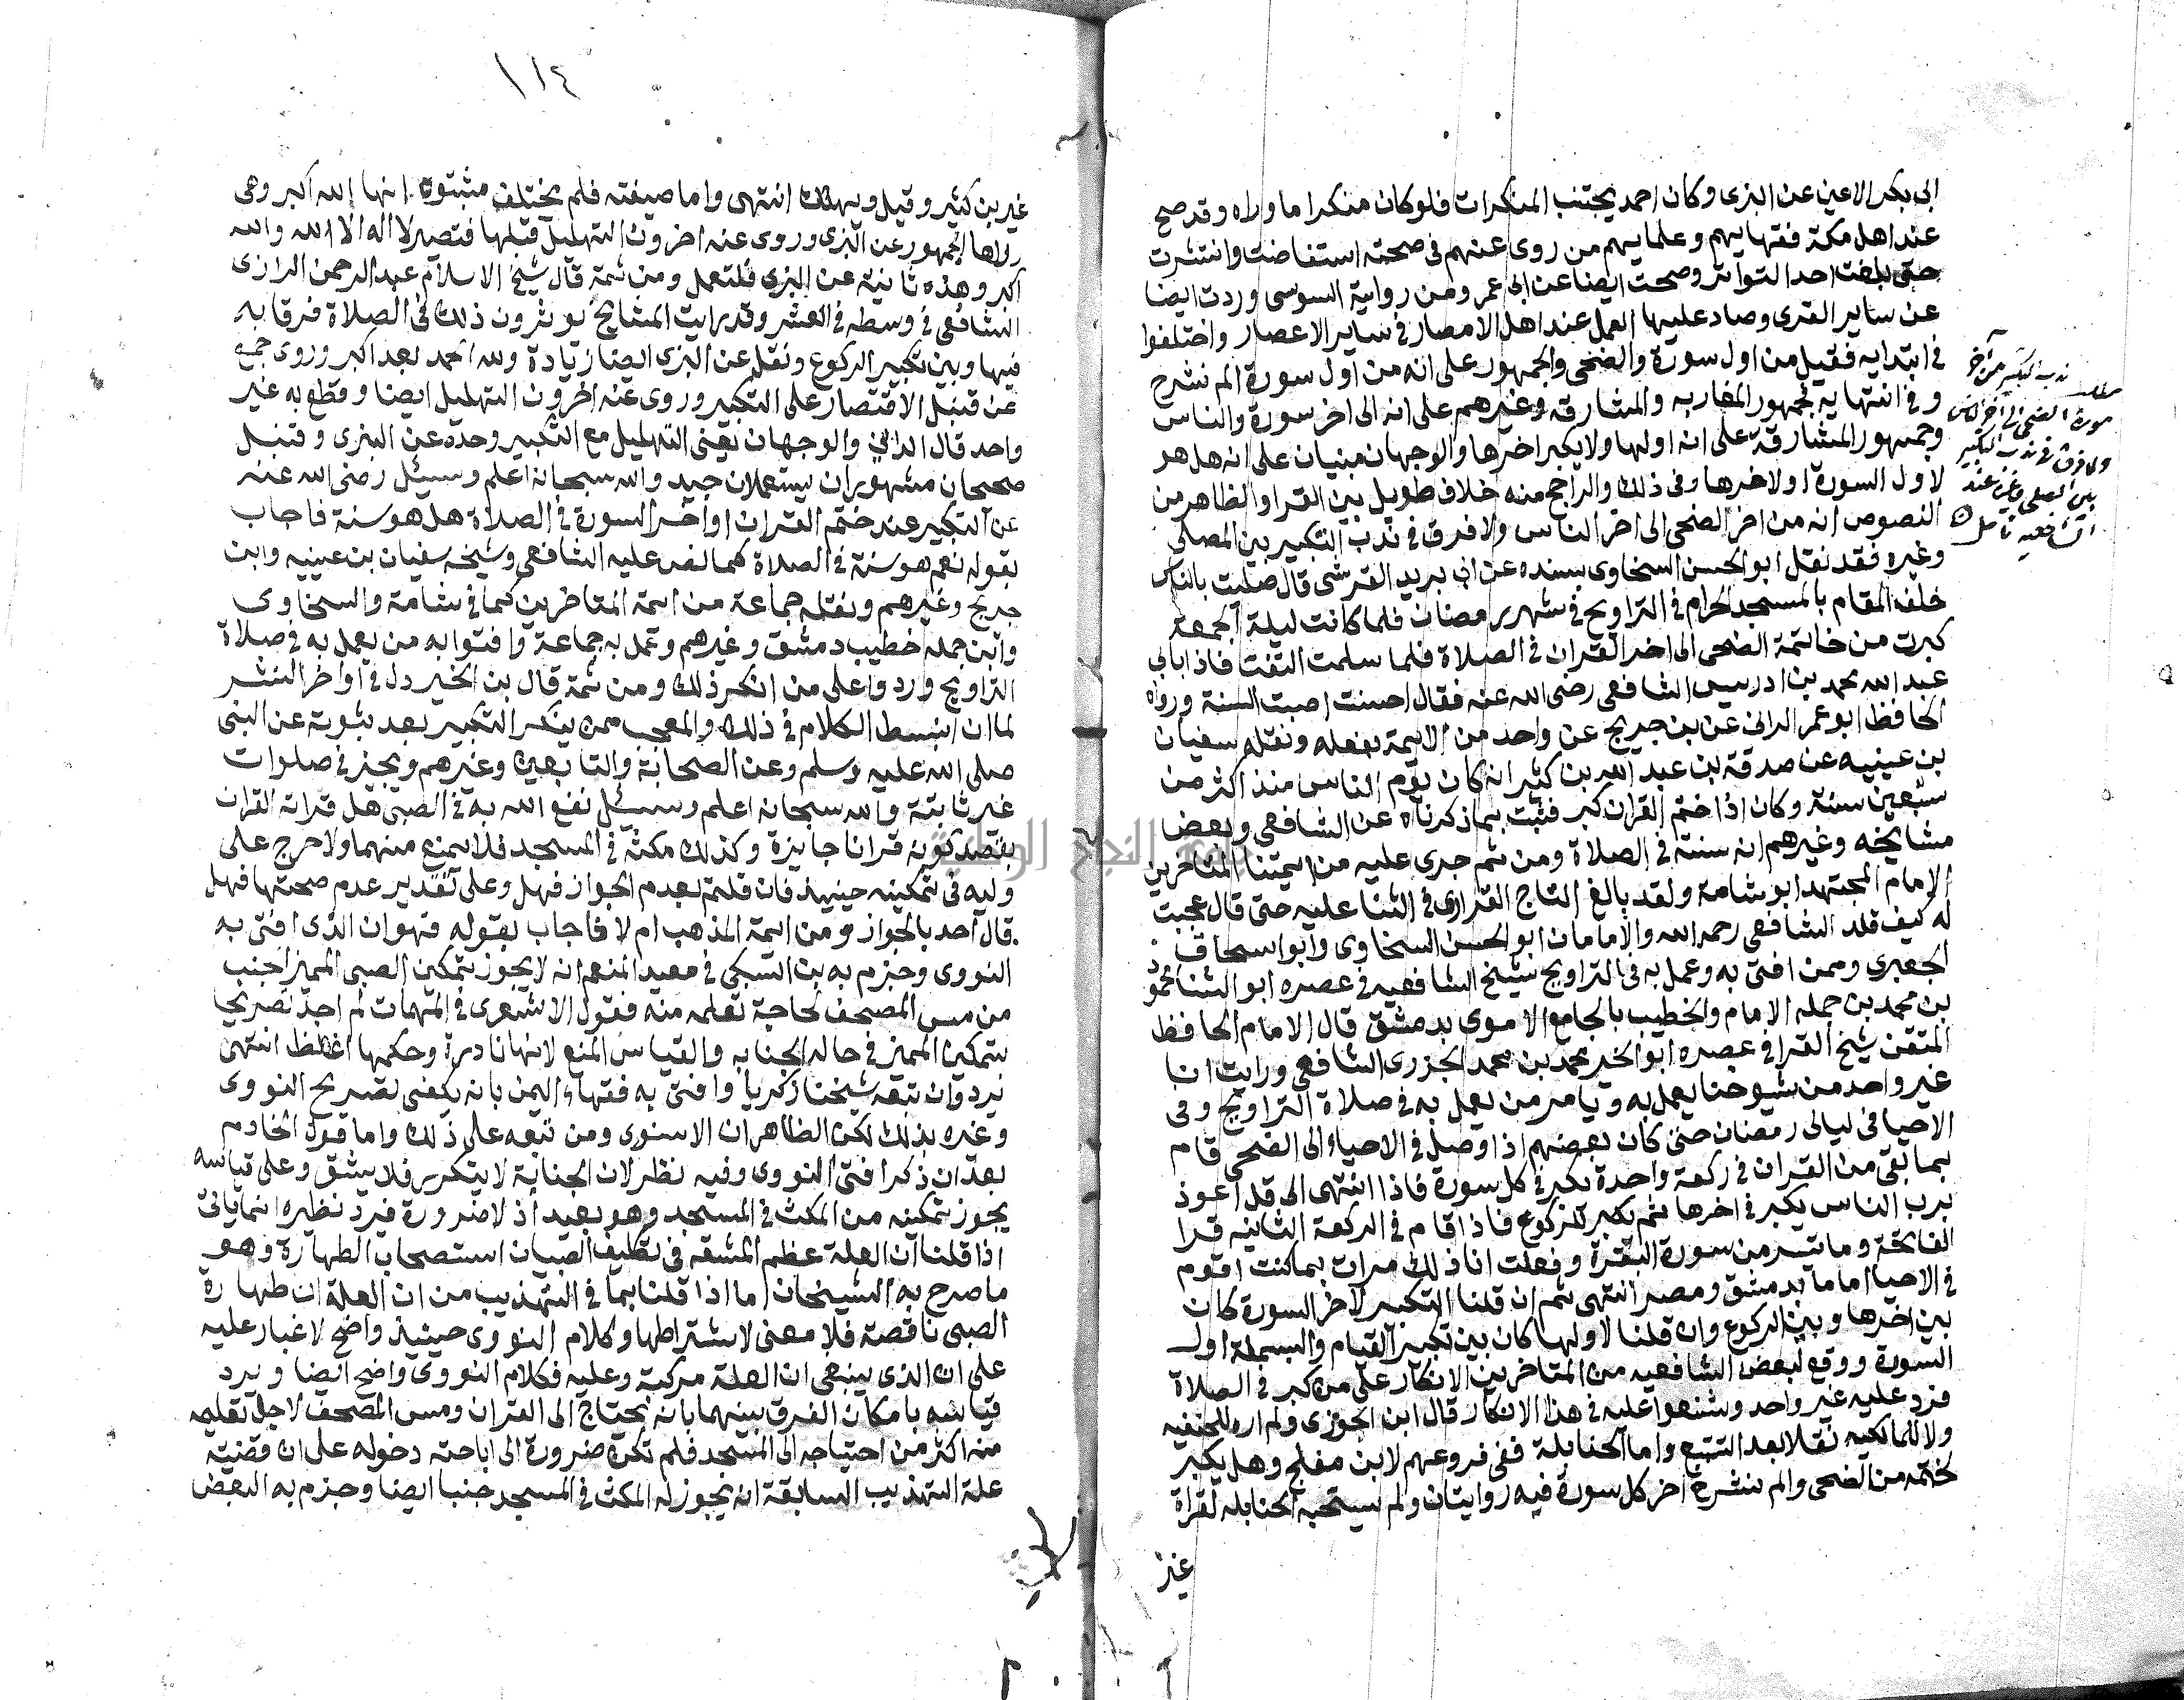 ابى بكر الاعين عن البزى وكان احمد يجتنب المنكرات فلو كان منكرا ما رواه وقد صح
عند اهل مكة فقهايهم وعلمايهم من روى عنهم فى صحته استفاضت وانتشرت
حتى بلغت احد التواتر وصحت ايضا عن ابى عمر ومن رواية السوسى وردت ايضا
عن ساير القرى وصاد عليها العمل عند اهل الامصار فى ساير الاعصار واختلفوا
فى ابتدايه فقيل من اول سورة والضحى والجمهور على انه من اول سورة الم نشرح
وفى انتهايه فجمهور المغاربه والمشارقه وغيرهم على انه الى اخر سورة والناس
وجمهور المشارقة على انه اولها ولا يكبر اخرها والوجهان مبنيان على انه هل هو
لاول السورة او لاخرها وفى ذلك والراجح منه خلاف طويل بين القرا والظاهر من
النصوص انه من اخر الضحى الى اخر الناس ولا فرق فى ندب التكبير بين المصلى
وغيره فقد نقل ابو الحسن السخاوى بسنده عن ابى يريد القرشى قال صليت بالناس
خلف المقام بالمسجد الحرام فى التراويح فى شهر رمضان فلما كانت ليلة الجمعة
كبرت من خاتمة الضحى الى اخر القران فى الصلاة فلما سلمت التفت فاذا بابى
عبد الله محمد بن ادريس الشافعى رضى الله عنه فقال احسنت اصبت السنة ورواه
الحافظ ابو عمر الدانى عن بن جريج عن واحد من الايمة بفعله ونقله سفيان
بن عينيه عن صدقة بن عبد الله بن كثير انه كان يوم الناس منذ اكثر من
سبعين سنة وكان اذا ختم القران كبر فثبت بما ذكرناه عن الشافعى وبعض
مشايخه وغيرهم انه سنة فى الصلاة ومن ثم جرى عليه من ايمتنا المتاخرين
الامام المجتهد ابو شامة ولقد بالغ التاج الفزارى فى الثنا عليه حتى قال عجبت
له كيف قلد الشافعى رحمه الله والامامان ابو الحسن السخاوى وابو اسحاق
الجعبرى وممن افتى به وعمل به فى التراويح شيخ الشافعيه فى عصره ابو الثنا محمود
بن محمد بن جمله الامام والخطيب بالجامع الاموى بدمشق قال الامام الحافظ
المتقن شيخ القرا فى عصره ابو الخير محمد بن محمد الجزرى الشافعى ورايت انا
غير واحد من شيوخنا يعمل به ويامر من يعمل به فى صلاة التراويح وفى
الاحيا فى ليالى رمضان حتى كان بعضهم اذا وصل فى الاحياء الى الضحى قام
بما بقى من القران فى ركعة واحدة يكبر فى كل سورة فاذا انتهى الى قل اعوذ
برب الناس يكبر فى اخرها ثم يكبر للركوع فاذا قام فى الركعة الثانيه قرا
الفاتحة وما تيسر من سورة البقرة وفعلت انا ذلك مرات بما كنت اقوم
فى الاحيا اماما بدمشق ومصر انتهى ثم ان قلنا التكبير لاخر السورة كان
بين اخرها وبين الركوع وان قلنا لاولها كان بين تكبير القيام والبسملة اول
السورة ووقع لبعض الشافعيه من المتاخرين الانكار على من كبر فى الصلاة
فرد عليه غير واحد وشنعوا عليه فى هذا الانكار قال ابن الجوزى ولم اره للحنفيه
ولا للمالكيه نقلا بعد التتبع واما الحنابلة ففى فروعهم لابن مفلح وهل يكبر
لختمه من الضحى والم نشرح اخر كل سورة فيه روايتان ولم يستحبه الحنابله لقراة
غير
مطلب ندب التكبير من آخر
سورة الضحى الى آخر الناس
ولا فرق فى ندب التكبير
بين المصلى وغيره عند
الشافعيه تامل
١١٤
غير بن كثير وقيل ويهلل انتهى واما صيغته فلم يختلف مثبتوه انها الله اكبر وهى
رواها الجمهور عن البزى وروى عنه اخرون التهليل قبلها فتصير لا اله الا الله والله
اكبر وهذه ثانية عن البزى فلتعمل ومن ثمة قال شيخ الاسلام عبد الرحمن الرازى
الشافعى فى وسطه فى العشر وقد رايت المشايخ يوثرون ذلك فى الصلاة فرقا به
فيها وبين تكبير الركوع ونقل عن البزى ايضا زيادة ولله الحمد بعد اكبر وروى جمع
عن قنبل الاقتصار على التكبير وروى عنه اخرون التهليل ايضا وقطع به غير
واحد قال الدانى والوجهان يعنى التهليل مع التكبير وحده عن البزى وقنبل
صحيحان مشهوران يستعملان جيد والله سبحانه اعلم وسيئل رضى الله عنه
عن التكبير عند ختم القران او آخر السورة فى الصلاة هل هو سنة فاجاب
بقوله نعم هو سنة فى الصلاة كما نص عليه الشافعى وشيخه سفيان بن عينيه وابن
جريج وغيرهم ونقله جماعة من ايمة المتاخرين كما فى شامة والسخاوى
وابن جمله خطيب دمشق وغيرهم وعمل به جماعة وافتوا به من يعمل به فى صلاة
التراويح وردوا على من انكر ذلك ومن ثمة قال بن الخير دل فى اواخر النشر
لما ان ابسط الكلام فى ذلك والعجب ممن ينكر التكبير بعد ثبوته عن النبى
صلى الله عليه وسلم وعن الصحابة والتابعين وغيرهم ويجيز فى صلوات
غير ثابتة والله سبحانه اعلم وسيئل نفع الله به فى الصبى هل قراته القران
بقصد كونه قرانا جايزة وكذلك مكثه فى المسجد فلا يمنع منهما ولا حرج على
وليه فى تمكينه حينيذ فان قلتم بعدم الجواز فهل وعلى تقدير عدم صحتها فهل
قال احد بالجواز ومن ايمة المذهب ام لا فاجاب بقوله فهو ان الذى افتى به
النووى وجزم به بن السبكى فى معيد المنعم انه لا يجوز تمكين الصبى المميز اجنب
من مس المصحف لحاجة تعلمه منه فقول الاشعرى فى المهمات لم اجد تصريحا
بتمكين المميز فى حاله الجنابه والقياس المنع لانها نادرة وحكمها اغلظ انتهى
يرد وان تبعه شيخنا زكريا وافتى به فقهاء اليمن بانه يكفى تصريح النووى
وغيره بذلك لكن الظاهر ان الاسنوى ومن تبعه على ذلك واما قول الخادم
بعد ان ذكر افتى النووى وفيه نظر لان الجنابة لا يتكرر فلا يشق وعلى قياسه
يجوز تمكينه من المكث فى المسجد وهو بعيد اذ لا ضرورة فيرد نظيره انما ياتى
اذا قلنا ان العلة عظم المشقه فى تكليف الصبيان استصحاب الطهارة وهو
ما صرح به الشيخان اما اذا قلنا بما فى التهذيب من ان العلة ان طهارة
الصبى ناقصة فلا معنى لاشتراطها وكلام النووى حينيذ واضح لا غبار عليه
على ان الذى ينبغى ان العلة مركبة وعليه فكلام النووى واضح ايضا ويرد
قياسه بامكان الفرق بينهما بانه يحتاج الى القران ومس المصحف لاجل تعليمه
منه اكثر من احتياجه الى المسجد فلم تكن ضرورة الى اباحته دخوله على ان قضية
علة التهذيب السابقة انه يجوز له المكث فى المسجد جنبا ايضا وجزم به البعض